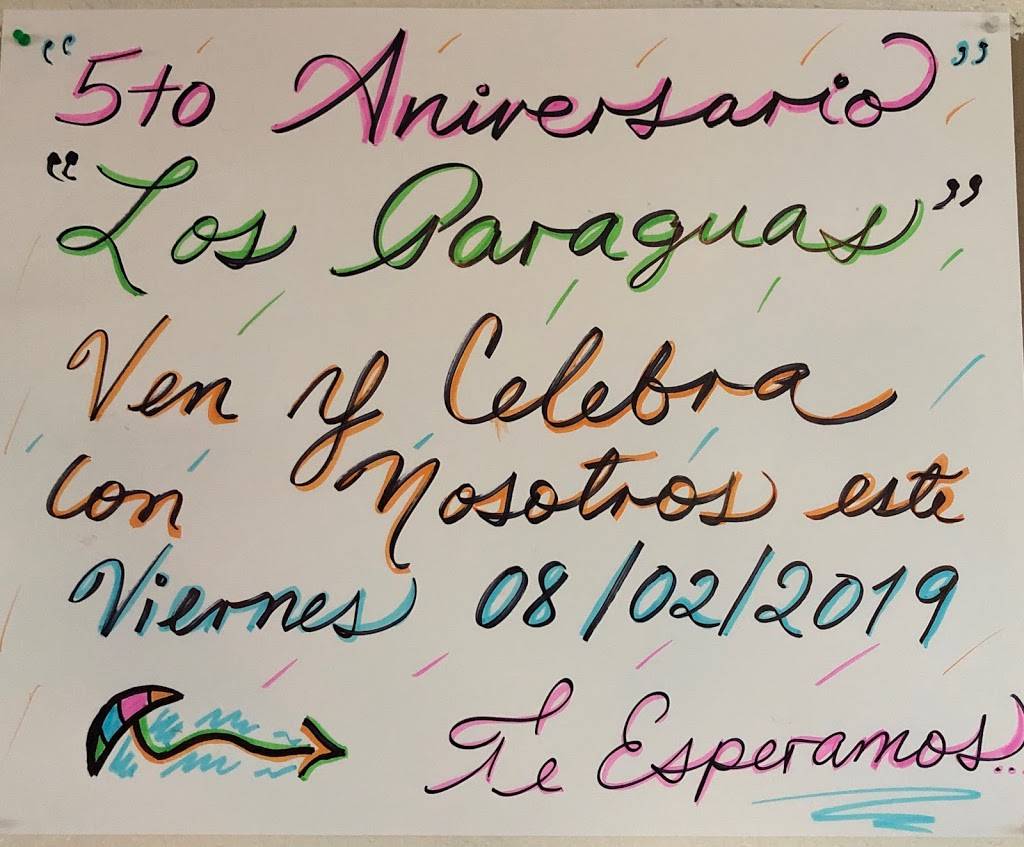 "5to Aniversario"
"Los Paraguas"
Ven y Celebra
con Nosotros este
Viernes 08/02/2019
Te Esperamos...